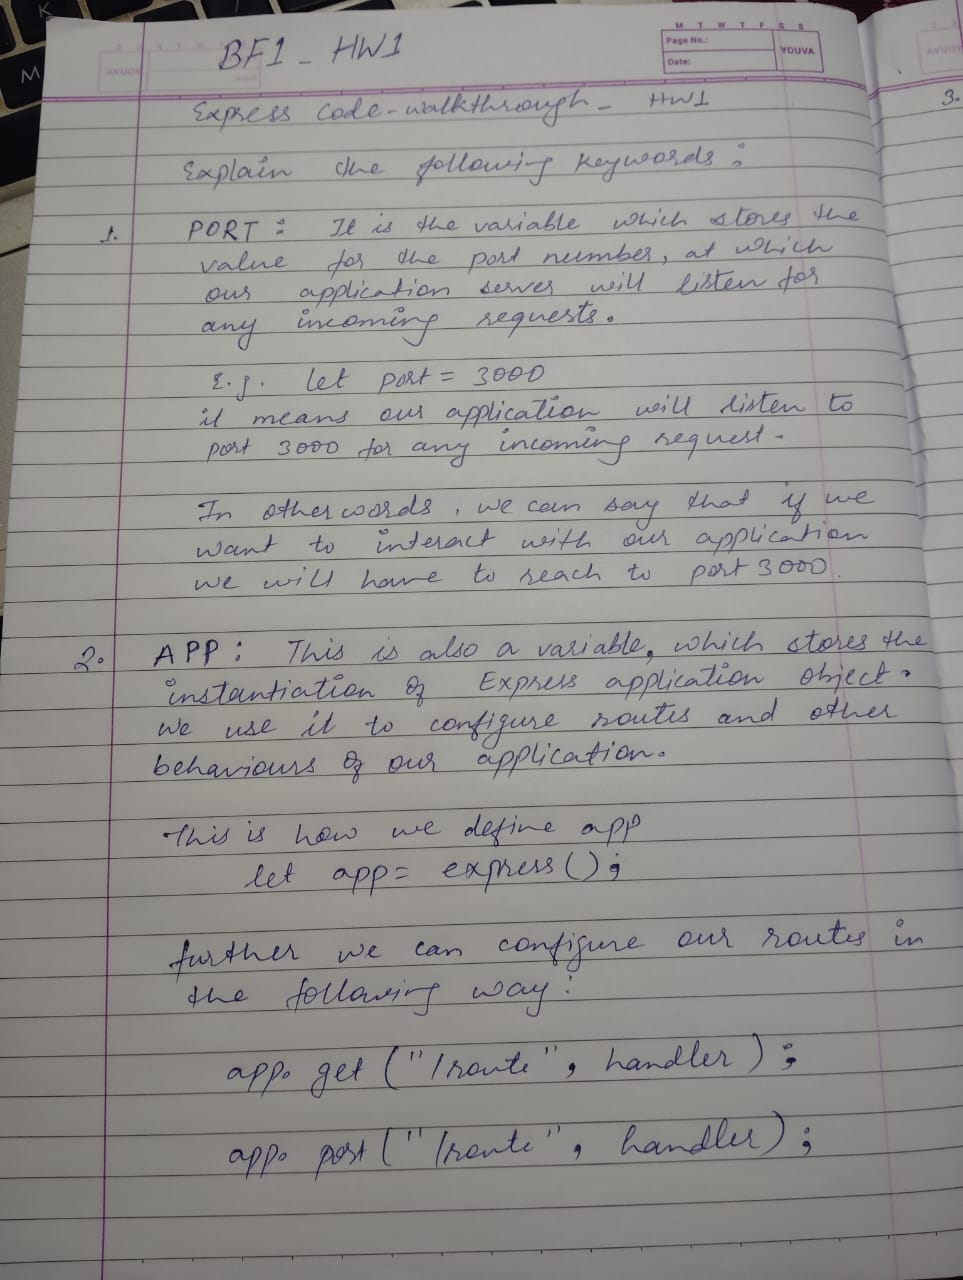 M T W T F S S
Page No.:
Date:
YOUVA
BF1 - HW1
Express code-walkthrough - HW1
3.
Explain the following keywords :
1. PORT : It is the variable which stores the
value for the port number, at which
our application server will listen for
any incoming requests.
E.g. let port = 3000
it means our application will listen to
port 3000 for any incoming request.
In other words, we can say that if we
want to interact with our application
we will have to reach to port 3000.
2. APP : This is also a variable, which stores the
instantiation of Express application object.
We use it to configure routes and other
behaviours of our application.
This is how we define app
let app = express();
further we can configure our routes in
the following way:
app. get ("/route", handler);
app. post ("/route", handler);